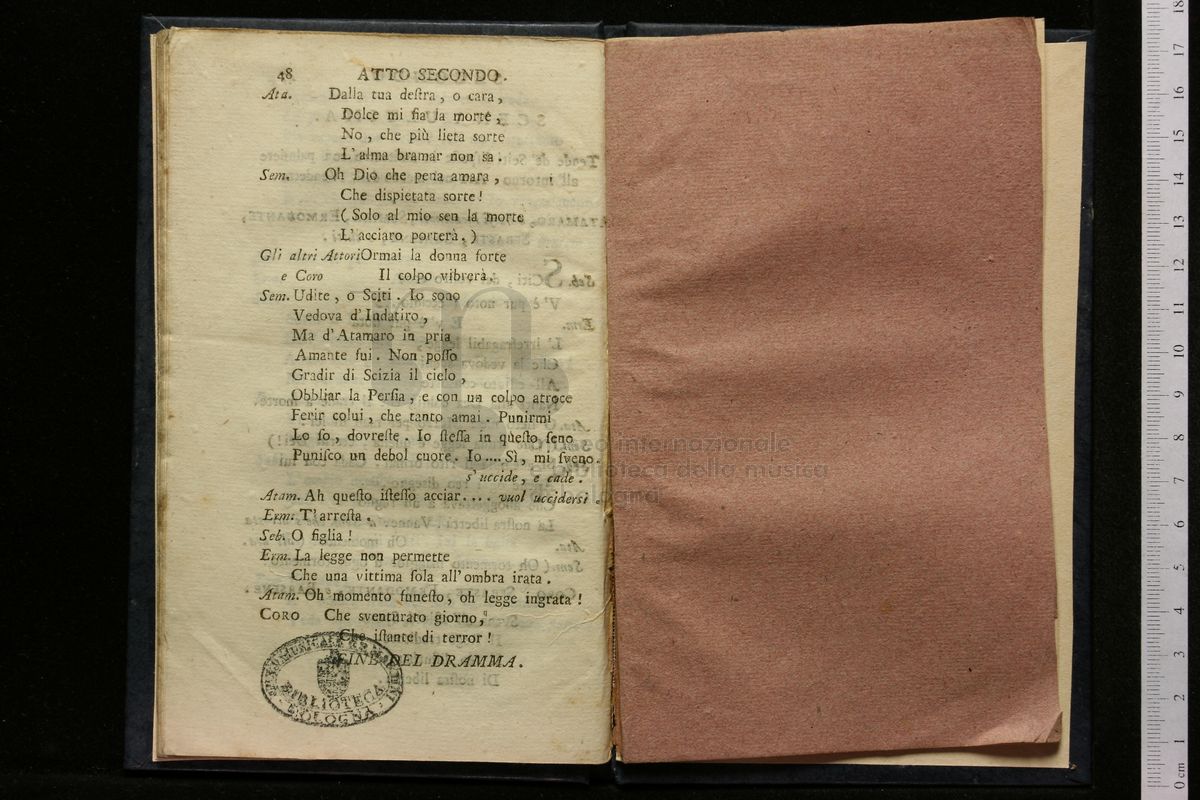 48 ATTO SECONDO.
Ata. Dalla tua deſtra, o cara,
Dolce mi fia la morte,
No, che più lieta sorte
L'alma bramar non sa.
Sem. Oh Dio che pena amara,
Che dispietata sorte!
(Solo al mio sen la morte
L'acciaro porterà.)
Gli altri Attori Ormai la donna forte
e Coro Il colpo vibrerà.
Sem. Udite, o Sciti. Io sono
Vedova d'Indatiro,
Ma d'Atamaro in pria
Amante fui. Non poſſo
Gradir di Scizia il cielo,
Obbliar la Perſia, e con un colpo atroce
Ferir colui, che tanto amai. Punirmi
Lo ſo, dovreſte. Io ſteſſa in queſto ſeno
Puniſco un debol cuore. Io.... Sì, mi ſveno.
s'uccide, e cade.
Atam. Ah queſto iſteſſo acciar.... vuol uccidersi.
Erm. T'arreſta.
Seb. O figlia!
Erm. La legge non permette
Che una vittima ſola all'ombra irata.
Atam. Oh momento funeſto, oh legge ingrata!
CORO Che sventurato giorno,
Che iſtante di terror!
FINE DEL DRAMMA.
BIBLIOTECA
BOLOGNA
museo internazionale
e biblioteca della musica
0 cm 1 2 3 4 5 6 7 8 9 10 11 12 13 14 15 16 17 18